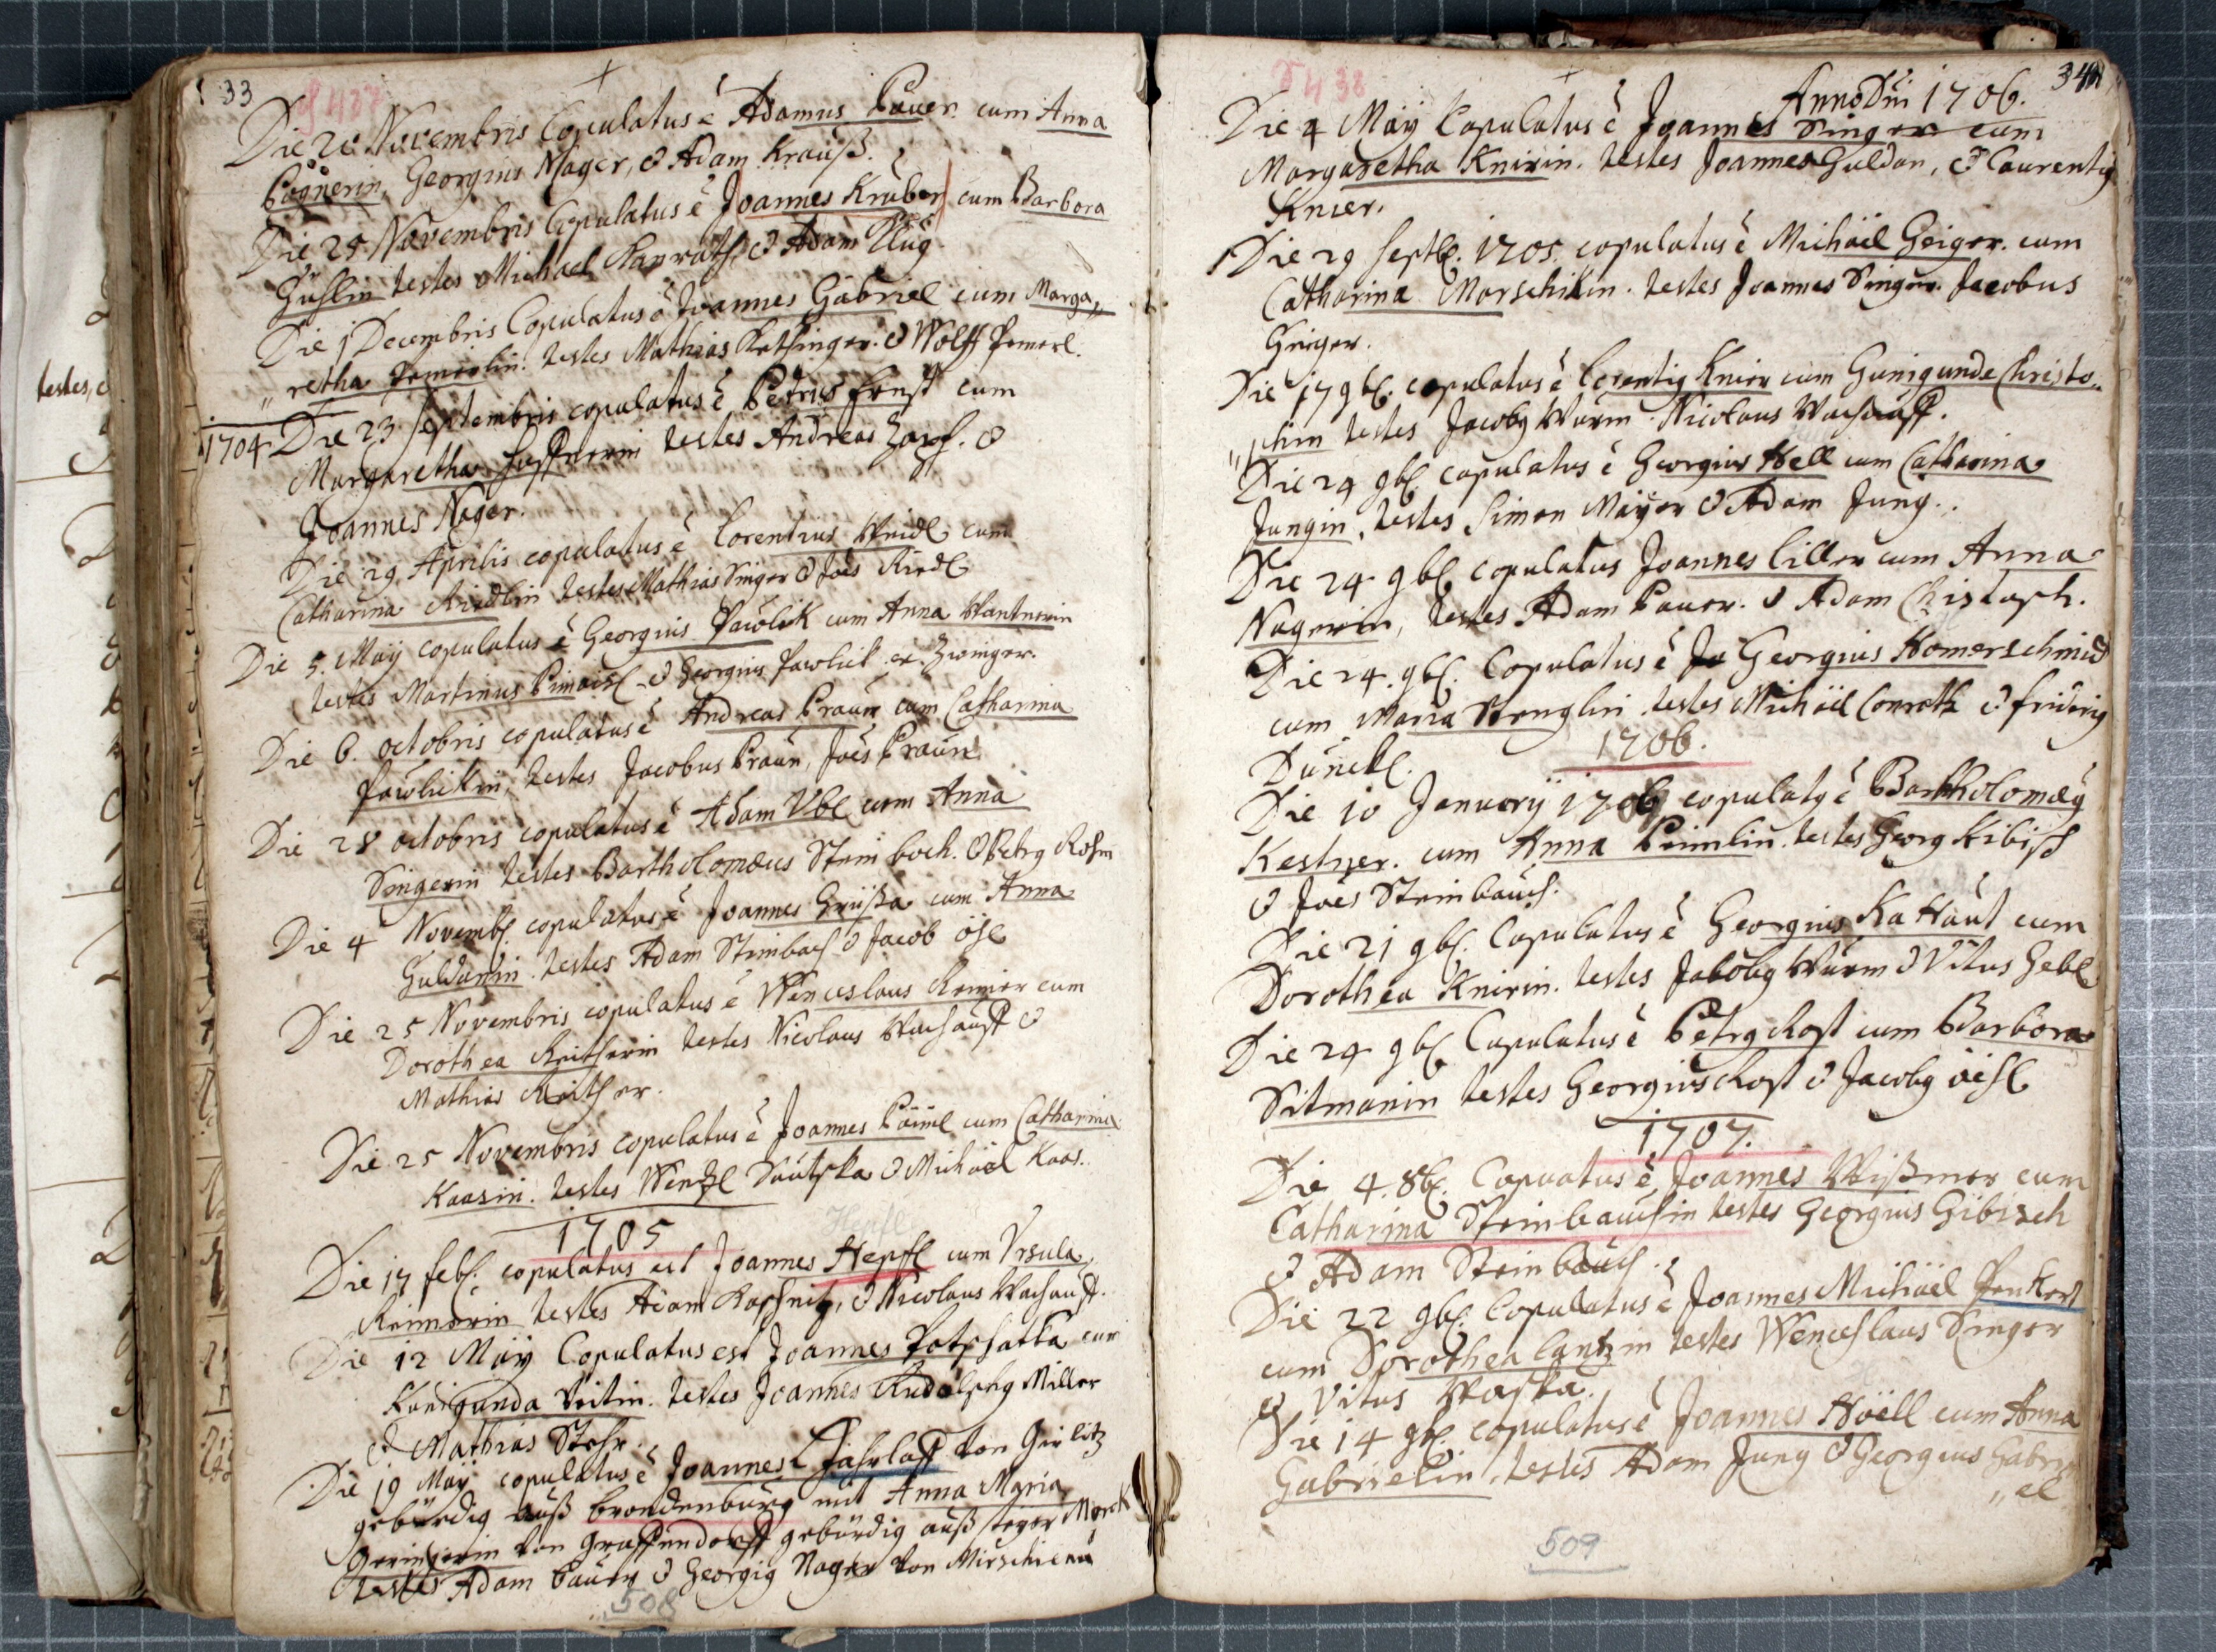 testes, e
33
d 437
Die 20 Novembris Copulatus ē Adamus Pauer cum Anna
Pögnerin, Georgius Nager, & Adam Krauß.
Die 25 Novembris Copulatus ē Joannes Kruber cum Barbora
Güßlin testes Michael & Adam Klug
Die 1 Decembris Copulatus ē Joannes Gabriel cum Marga„
„retha testes Mathias & Wolff
1704 Die 23 Septembris copulatus ē Petrus Ernst cum
Margaretha testes Andreas Zapf. &
Joannes Nager.
Die 29 Aprilis copulatus ē Lorentius Weidl cum
Catharina Riedlin testes Mathias Singer & Joēs Riedl
Die 5. Maÿ copulatus ē Georgius Pawlik cum Anna Wantnerin
testes Martinus & Georgius Pawlick ex Zwinger.
Die 6. octobris copulatus ē Andreas Praun cum Catharina
Pawlickin, testes Jacobus Praun, Joēs Praun
Die 28 octobris copulatus ē Adam Vbl cum Anna
Singerin testes Bartholomæus Steinboch. & Petrg
Die 4 Novemb. copulatus ē Joannes Grüßa cum Anna
Guldanin. testes Adam Steinbach & Jacob ößl
Die 25 Novembris copulatus ē Wenceslaus Reimer cum
Dorothea Reitherin testes Nicolaus Wachauff &
Mathias Reither.
Die 25 Novembris copulatus ē Joannes Päiml cum Catharina
Kaasin. testes Wentzl & Michäel Kaas.
1705
Hepfl
Die 17 feb. copulatus est Joannes Hepfl cum Vrsula
Reimerin testes Adam & Nicolaus Wachauff.
Die 12 Maÿ Copulatus est Joannes Potschatka cum
Kunigunda Veitin. testes Joannes Rudolphg Miller
& Mathias Stehr.
Die 19 Maÿ copulatus ē Joannes Fahrlaß von Girlitz
gebürdig auß brondenburg mit Anna Maria
von Graffendorff gebürdig auß
testes Adam Pauer & Georgig Nager von Mirschickau
508
J 438
Anno Dni 1706. 34
Die 4 Maÿ Copulatus ē Joannes Singer cum
Margaretha Knirin. testes Joannes Guldan, & Laurentig
Knier.
Die 29 septb. 1705. copulatus ē Michäel Geiger. cum
Catharina Morschikin. testes Joannes Singer. Jacobus
Geiger.
Die 17 9b. copulatus ē Lorentig Knier cum Gunigunde Christo„
„phin testes Jacobg Wurm Nicolaus Wachauff.
Die 24 9b. copulatus ē Georgius Hell cum Catharina
Jungin. testes Simon Mayer & Adam Jung.
Die 24 9b. copulatus Joannes Liller cum Anna
Nagerin, testes Adam Pauer. & Adam Christoph.
Die 24. 9b. Copulatus ē Jo Georgius Homerschmid
cum Maria Stenglin testes Michäel Conroth & fridrig
Dünckl.
1706.
Die 10 Januarÿ 1706 copulatg ē Bartholomæg
Kestner. cum Anna Peimlin. testes Georg Kibisch
& Joēs Steinbauch.
Die 21 9b. Copulatus ē Georgius Kattaut cum
Dorothea Knirin. testes Jacobg Wurm & Vitus Gebl
Die 24 9b. Copulatus ē Petrg Rost cum Barbora
Sitmanin testes Georgius Rost & Jacobg öeßl
1707.
Die 4. 8b. Copuatus ē Joannes Wißmer cum
Catharina Steinbauchin testes Georgius Gibisch
& Adam Steinbauch.
Die 22 9b. Copulatus ē Joannes Michäel Penkert
cum Dorothea Lantzin testes Wenceslaus Singer
& Vitus Waska.
Die 14 9b. copulatus ē Joannes Höell cum Anna
Gabrielin. testes Adam Jung & Georgius Gabri
„el
509